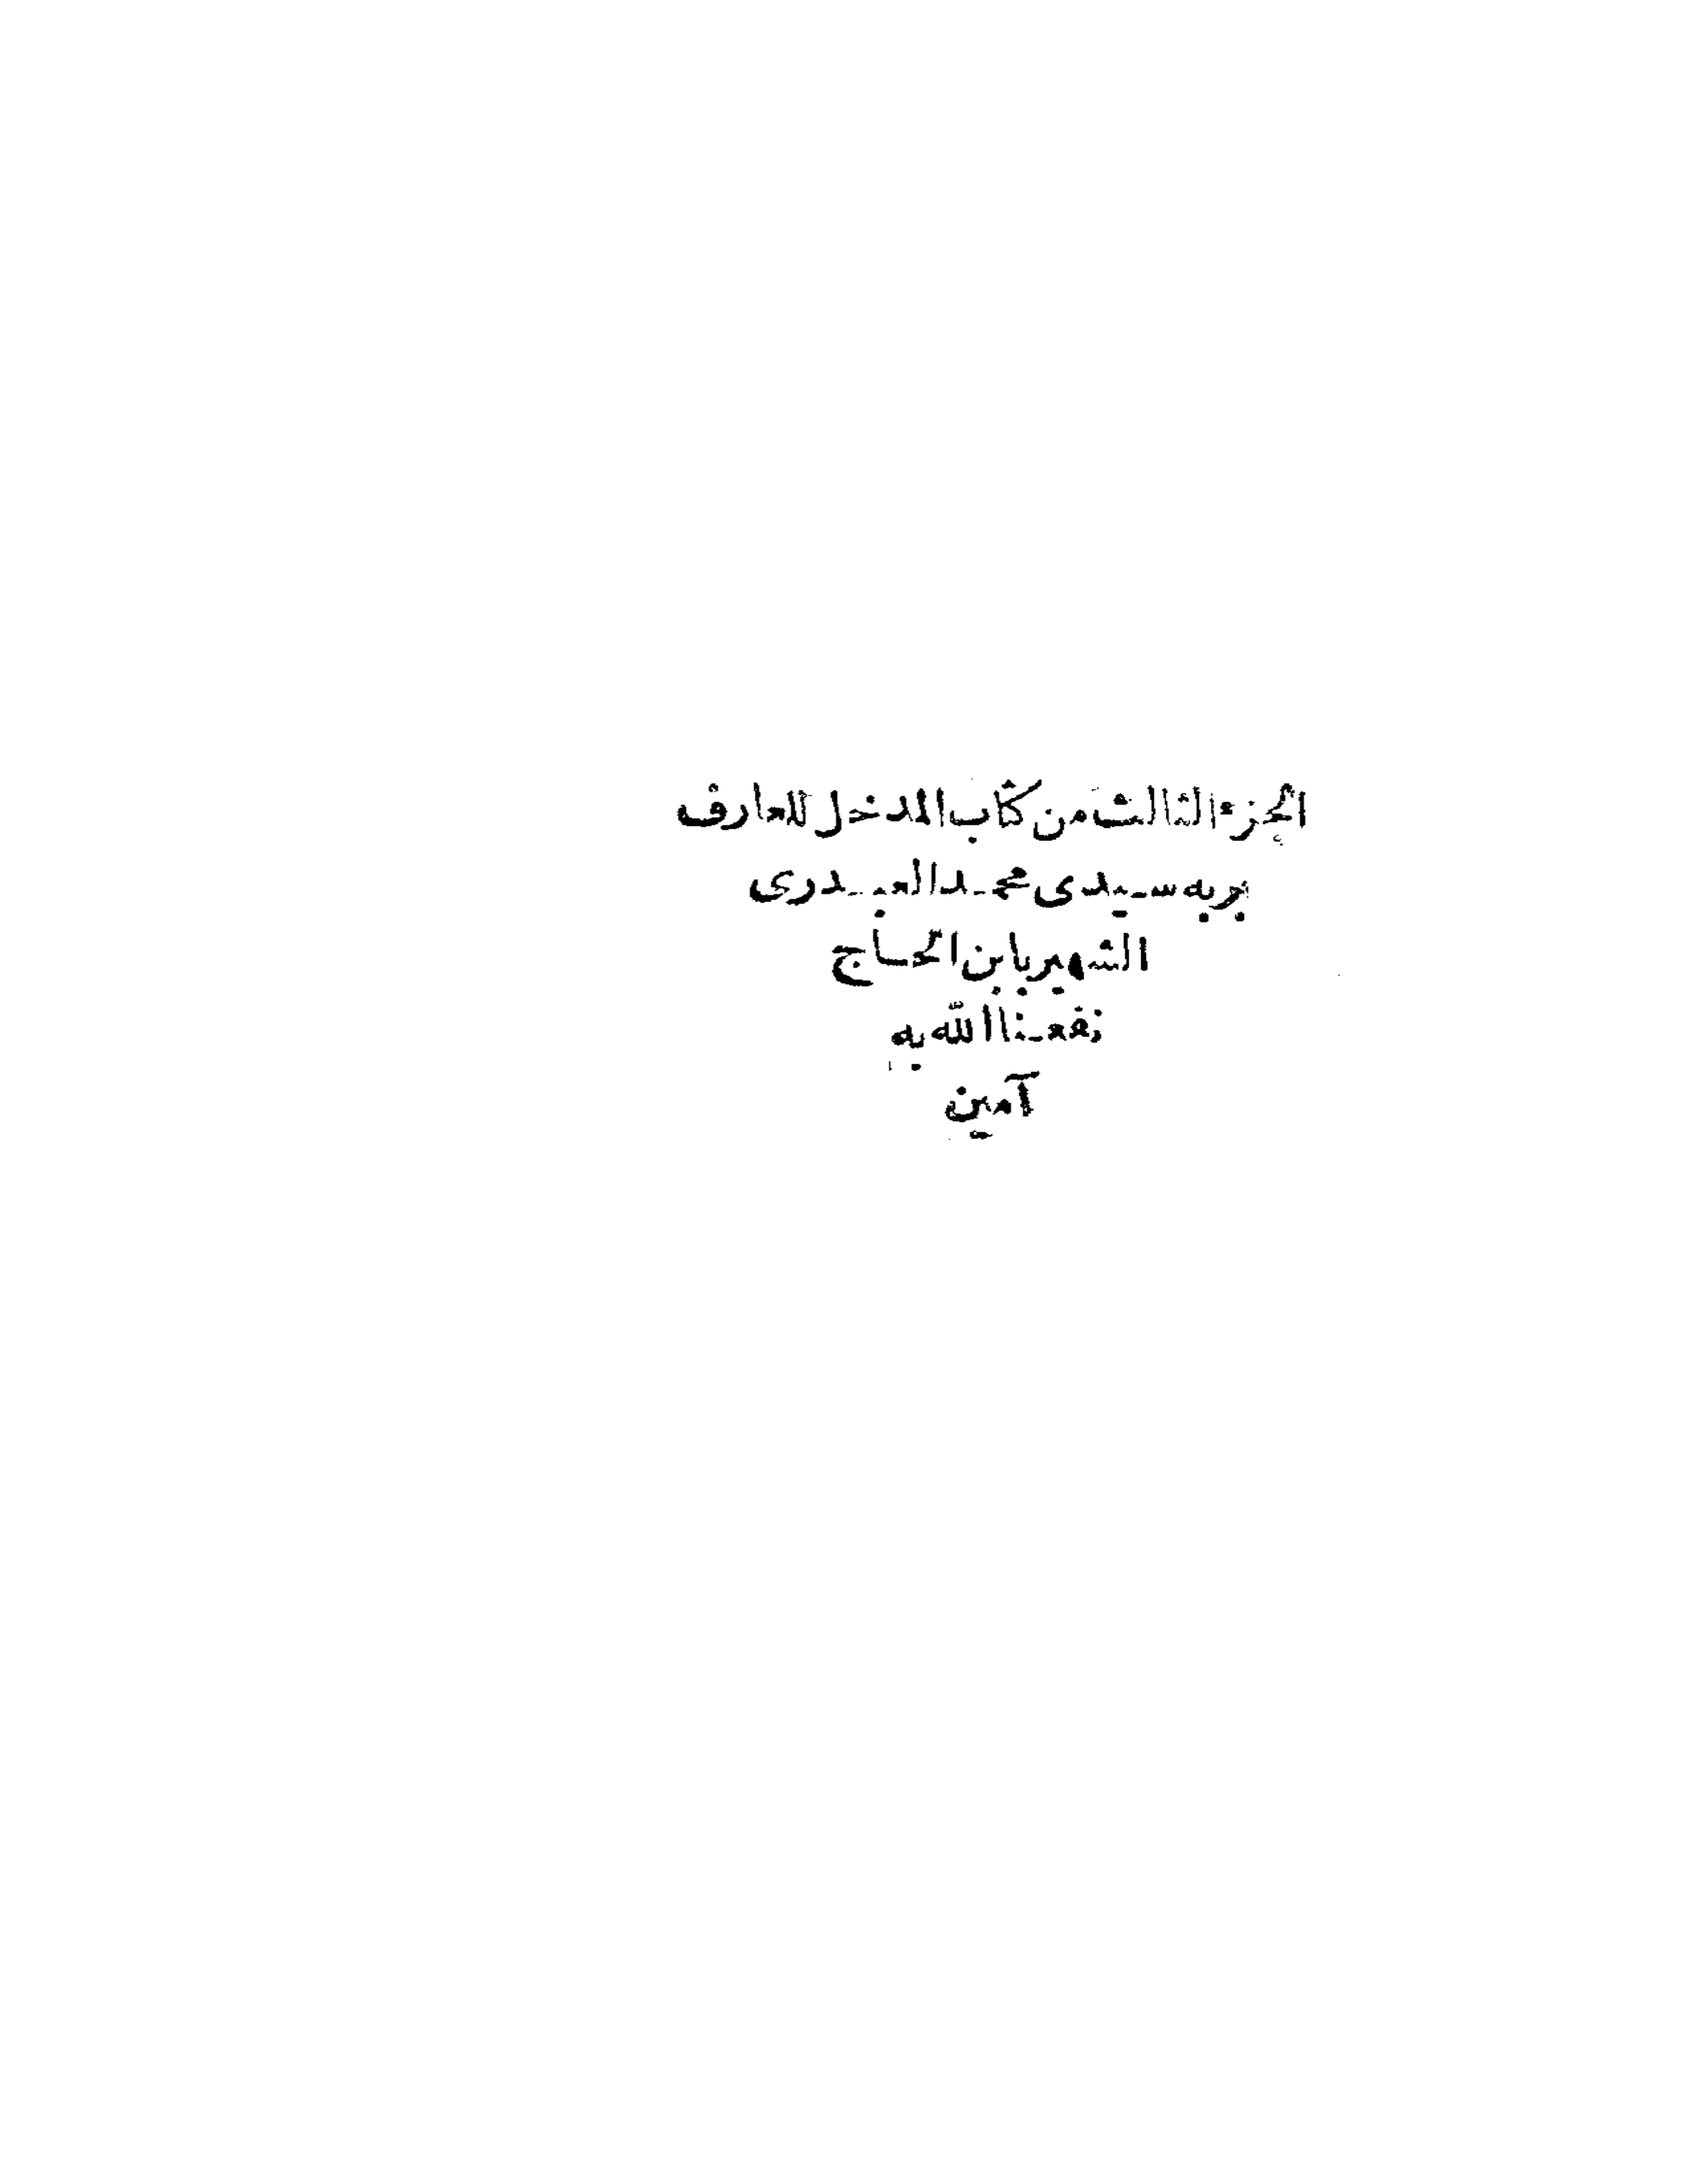 الجزء الثالث من كتاب المدخل للعارف
بربه سيدى محمد العبدرى
الشهير بابن الحاج
نفعنا الله به
آمين